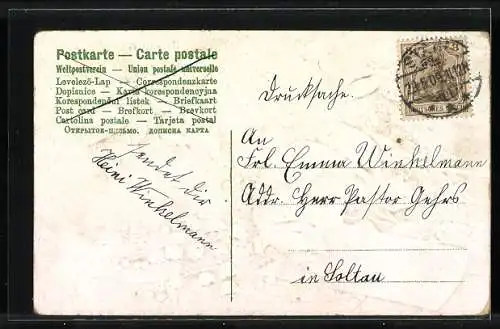 Postkarte — Carte postale
Weltpostverein — Union postale universelle
Levelező-Lap — Correspondenzkarte
Dopisnice — Karta korespondencyjna
Korespondenční lístek — Briefkaart
Post card — Brefkort — Brevkort
Cartolina postale — Tarjeta postal
Открытое письмо. дописна карта
Drucksache.
An
Frl. Emma Winkelmann
Addr. Herr Pastor Gehrs
in Soltau
sendet dir
Heini Winkelmann